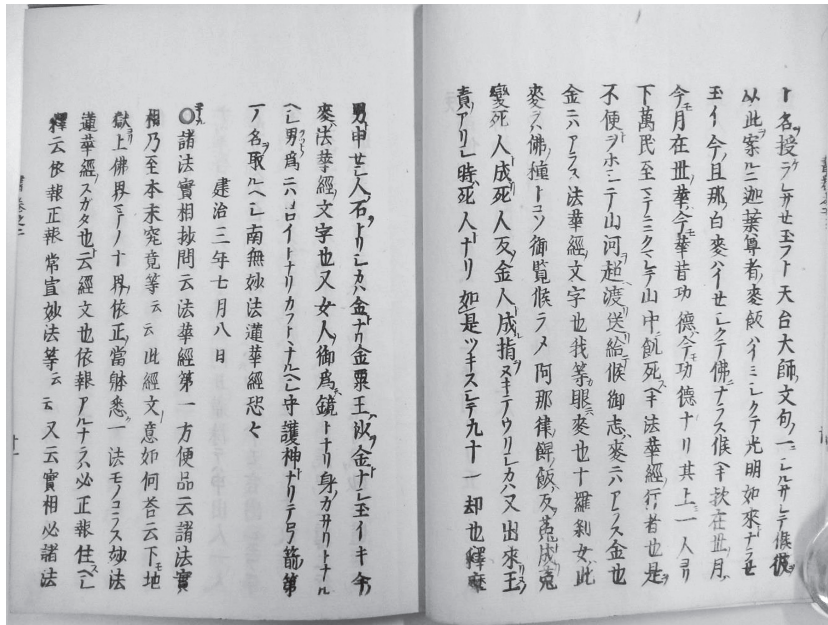 ト名授ラレサセ玉フト天台大師文句ノ一ニシルサレテ候彼
以此案ルニ迦葉尊者麥飯ハイミシクテ光明如來ナラセ
玉イ今且那ノ白麥ハイヤシクテ佛ニナラス候ヘキ歟在世月ハ
今モ月在世華ハ今モ華昔功德ハ今モ功德ナリ其上上一人ヨリ
下萬民至マテニクマレテ山中ニ飢死ヘキ法華經行者也是ヲ
不便トヲホシテ山河超渡送給候御志ハ麥ニハアラス金也
金ニハアラス法華經文字也我等眼ニハ麥也十羅刹女ハ此
麥ヲハ佛種トコソ御覽候ラメ阿那律稗飯ハ反菟成菟
變死人成死人反金人成指ヌキテウリシカハ又出來王
責アリシ時死人ナリ如是ツキスシテ九十一却也釋摩
男申せし人石トリシカハ金ナリ金粟王ハ沙ヲ金ナシ玉イキ今ノ
麥ハ法華經ノ文字也又女人ノ御爲ニハ鏡トナリ身ノカサリトナル
ヘシ男爲ニハヨロイトナリカフトトナルヘシ守護神ナリテ弓箭第
一ノ名取ルヘシ南無妙法蓮華經恐々
建治三年七月八日
諸法實相抄問云法華經第一方便品云諸法實
相乃至本末究竟等云云此經文ノ意如何荅云下モ地
獄ヨリ上佛界マテノ十界ノ依正ノ當躰悉一法モノコラス妙法
蓮華經ノスカタ也ト云經文也依報アルナラハ必正報住ヘシ
釋云依報正報常宣妙法等云云又云實相必諸法